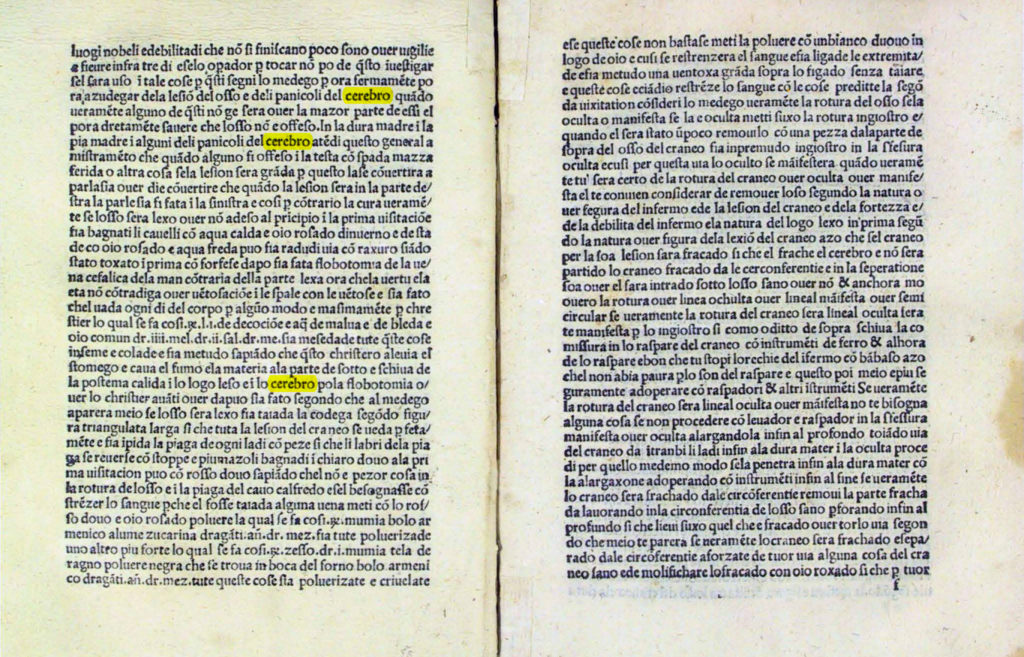 luogi nobeli edebilitadi che nō si finiscano poco sono ouer uigilie
e fieure infra tre di eselo opador p tocar nō po de q̄sti iuestigar
sel sara uso i tale cose p q̄sti segni lo medego p ora fermamēte po
ra azudegar dela lesiō del osso e deli panicoli del cerebro quādo
ueramēte alguno de q̄sti nō ge sera ouer la mazor parte de essi el
pora dretamēte sauere che losso nō e offeso. In la dura madre i la
pia madre i alguni deli panicoli del cerebro atēdi questo general a
mistramēto che quādo alguno fi offeso i la testa cō spada mazza
ferida o altra cosa sela lesion sera grāda p questo lase cōuertira a
parlasia ouer die cōuertire che quādo la lesion sera in la parte de/
stra la parlesia fi fata i la sinistra e cosi p cōtrario la cura ueramē/
te se losso sera lexo ouer nō adeso al pricipio i la prima uisitaciōe
fia bagnati li cauelli cō aqua calda e oio rosado dinuerno e de sta
de co oio rosado e aqua freda puo fia radudi uia cō raxuro siādo
stato toxato i prima cō forfese dapo fia fata flobotomia de la ue/
na cefalica dela man cōtraria della parte lexa ora chela uertu ela
eta nō cōtradiga ouer uētosaciōe i le spale con le uētose e sia fato
chel uada ogni di del corpo p algūo modo e masimamēte p chre
stier lo qual se fa cosi. ꝶ. l. i. de decociōe e aq̄ de malua e de bleda e
oio comun dr. iiii. mel. dr. ii. sal. dr. me. sia mesedade tute q̄ste cose
inseme e colade e fia metudo sapiādo che q̄sto christero aleuia el
stomego e caua el fumo ela materia ala parte de sotto e schiua de
la postema calida i lo logo leso ei lo cerebro pola flobotomia o/
uer lo christier auāti ouer dapuo sia fato segondo che al medego
aparera meio se losso sera lexo fia taiada la codega segōdo figu/
ra triangulata larga si che tuta la lesion del cra neo se ueda p feta/
mēte e fia ipida la piaga de ogni ladi cō peze si che li labri dela pia
ga se reuerse cō stoppe e piumazoli bagnadi i chiaro douo ala pri
ma uisitacion puo cō rosso douo sapiādo chel nō e pezor cosa in
la rotura de losso e i la piaga del cauo calfredo e sel besognasse cō
strēzer lo sangue pche el fosse taiada alguna uena meti cō lo ros/
so douo e oio rosado poluere la qual se fa cosi. ꝶ. mumia bolo ar
menico alume zucarina dragāti. añ. dr. mez. fia tute poluerizade
uno altro piu forte lo qual se fa cosi. ꝶ. zesso. dr. i. mumia tela de
ragno poluere negra che se troua in boca del forno bolo armeni
co dragāti. añ. dr. mez. tute queste cose sia poluerizate e criuelate
ese queste cose non bastase meti la poluere cō un bianco duouo in
logo de oio e cusi se restrenzera el sangue e fia ligade le extremita/
de e fia metudo una uentoxa grāda sopra lo figado senza taiare
e queste cose ecciādio restrēze lo sangue cō le cose preditte la segō
da uixitation cōsideri lo medego ueramēte la rotura del osso sela
oculta o manifesta se la e oculta metti suxo la rotura ingiostro e/
quando el sera stato ūpoco remouilo cō una pezza dala parte de
sopra del osso del craneo fia inpremudo ingiostro in la sfesura
oculta ecusi per questa uia lo oculto se māifestera. quādo ueramē
te tu' sera certo de la rotura del craneo ouer oculta ouer manife/
sta el te conuien considerar de remouer loso segundo la natura o
uer fegura del infermo ede la lesion del craneo e dela fortezza e/
de la debilita del infermo ela natura del logo lexo in prima segū
do la natura ouer figura dela lexiō del craneo azo che sel craneo
per la soa lesion sara fracado si che el frache el cerebro e nō sera
partido lo craneo fracado da le cerconferentie e in la seperatione
soa ouer el sara intrado sotto losso sano ouer nō & anchora mo
ouero la rotura ouer linea ochulta ouer lineal māifesta ouer semi
circular se ueramente la rotura del craneo sera lineal oculta sera
te manifesta p lo ingiostro si como oditto de sopra schiua la co
missura in lo raspare del craneo cō instrumēti de ferro & alhora
de lo raspare ebon che tu stopi lorechie del ifermo cō bābaso azo
chel non abia paura plo son del raspare e questo poi meio epiu se
guramente adoperare cō raspadori & altri istrumēti Se ueramēte
la rotura del craneo sera lineal oculta ouer māifesta no te bisogna
alguna cosa se non procedere cō leuador e raspador in la sfessura
manifesta ouer oculta alargandola infin al profondo toiādo uia
del craneo da itranbi li ladi infin ala dura mater i la oculta proce
di per quello medemo modo sela penetra infin ala dura mater cō
la alargaxone adoperando cō instrumēti infin al fine se ueramēte
lo craneo sera frachado dale circōferentie remoui la parte fracha
da lauorando inla circonferentia de losso sano pforando infin al
profundo si che lieui suxo quel che e fracado ouer torlo uia segon
do che meio te parera se neramēte locraneo sera frachado e sepa/
rado dale circōferentie aforzate de tuor uia alguna cosa del cra
neo sano ede molifichare lofracado con oio roxado si che p tuor
f